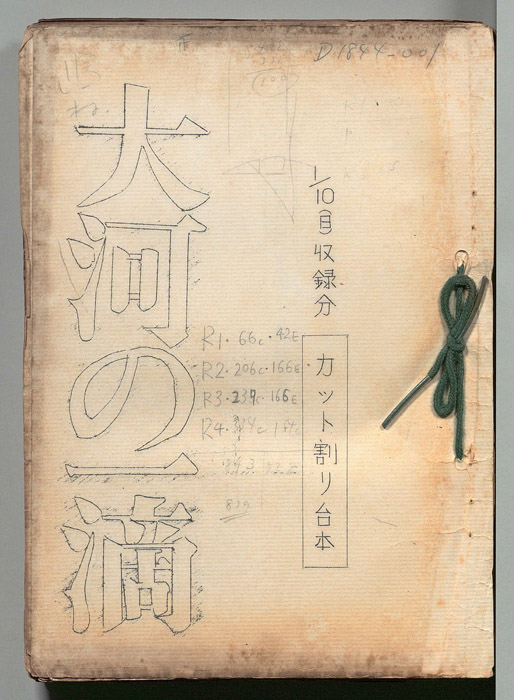 D.1844-001
1/10目収録分
カット割り台本
大河の一滴
R1・66c・42E
R2・206c・166E
R3・237c・166E
R4・